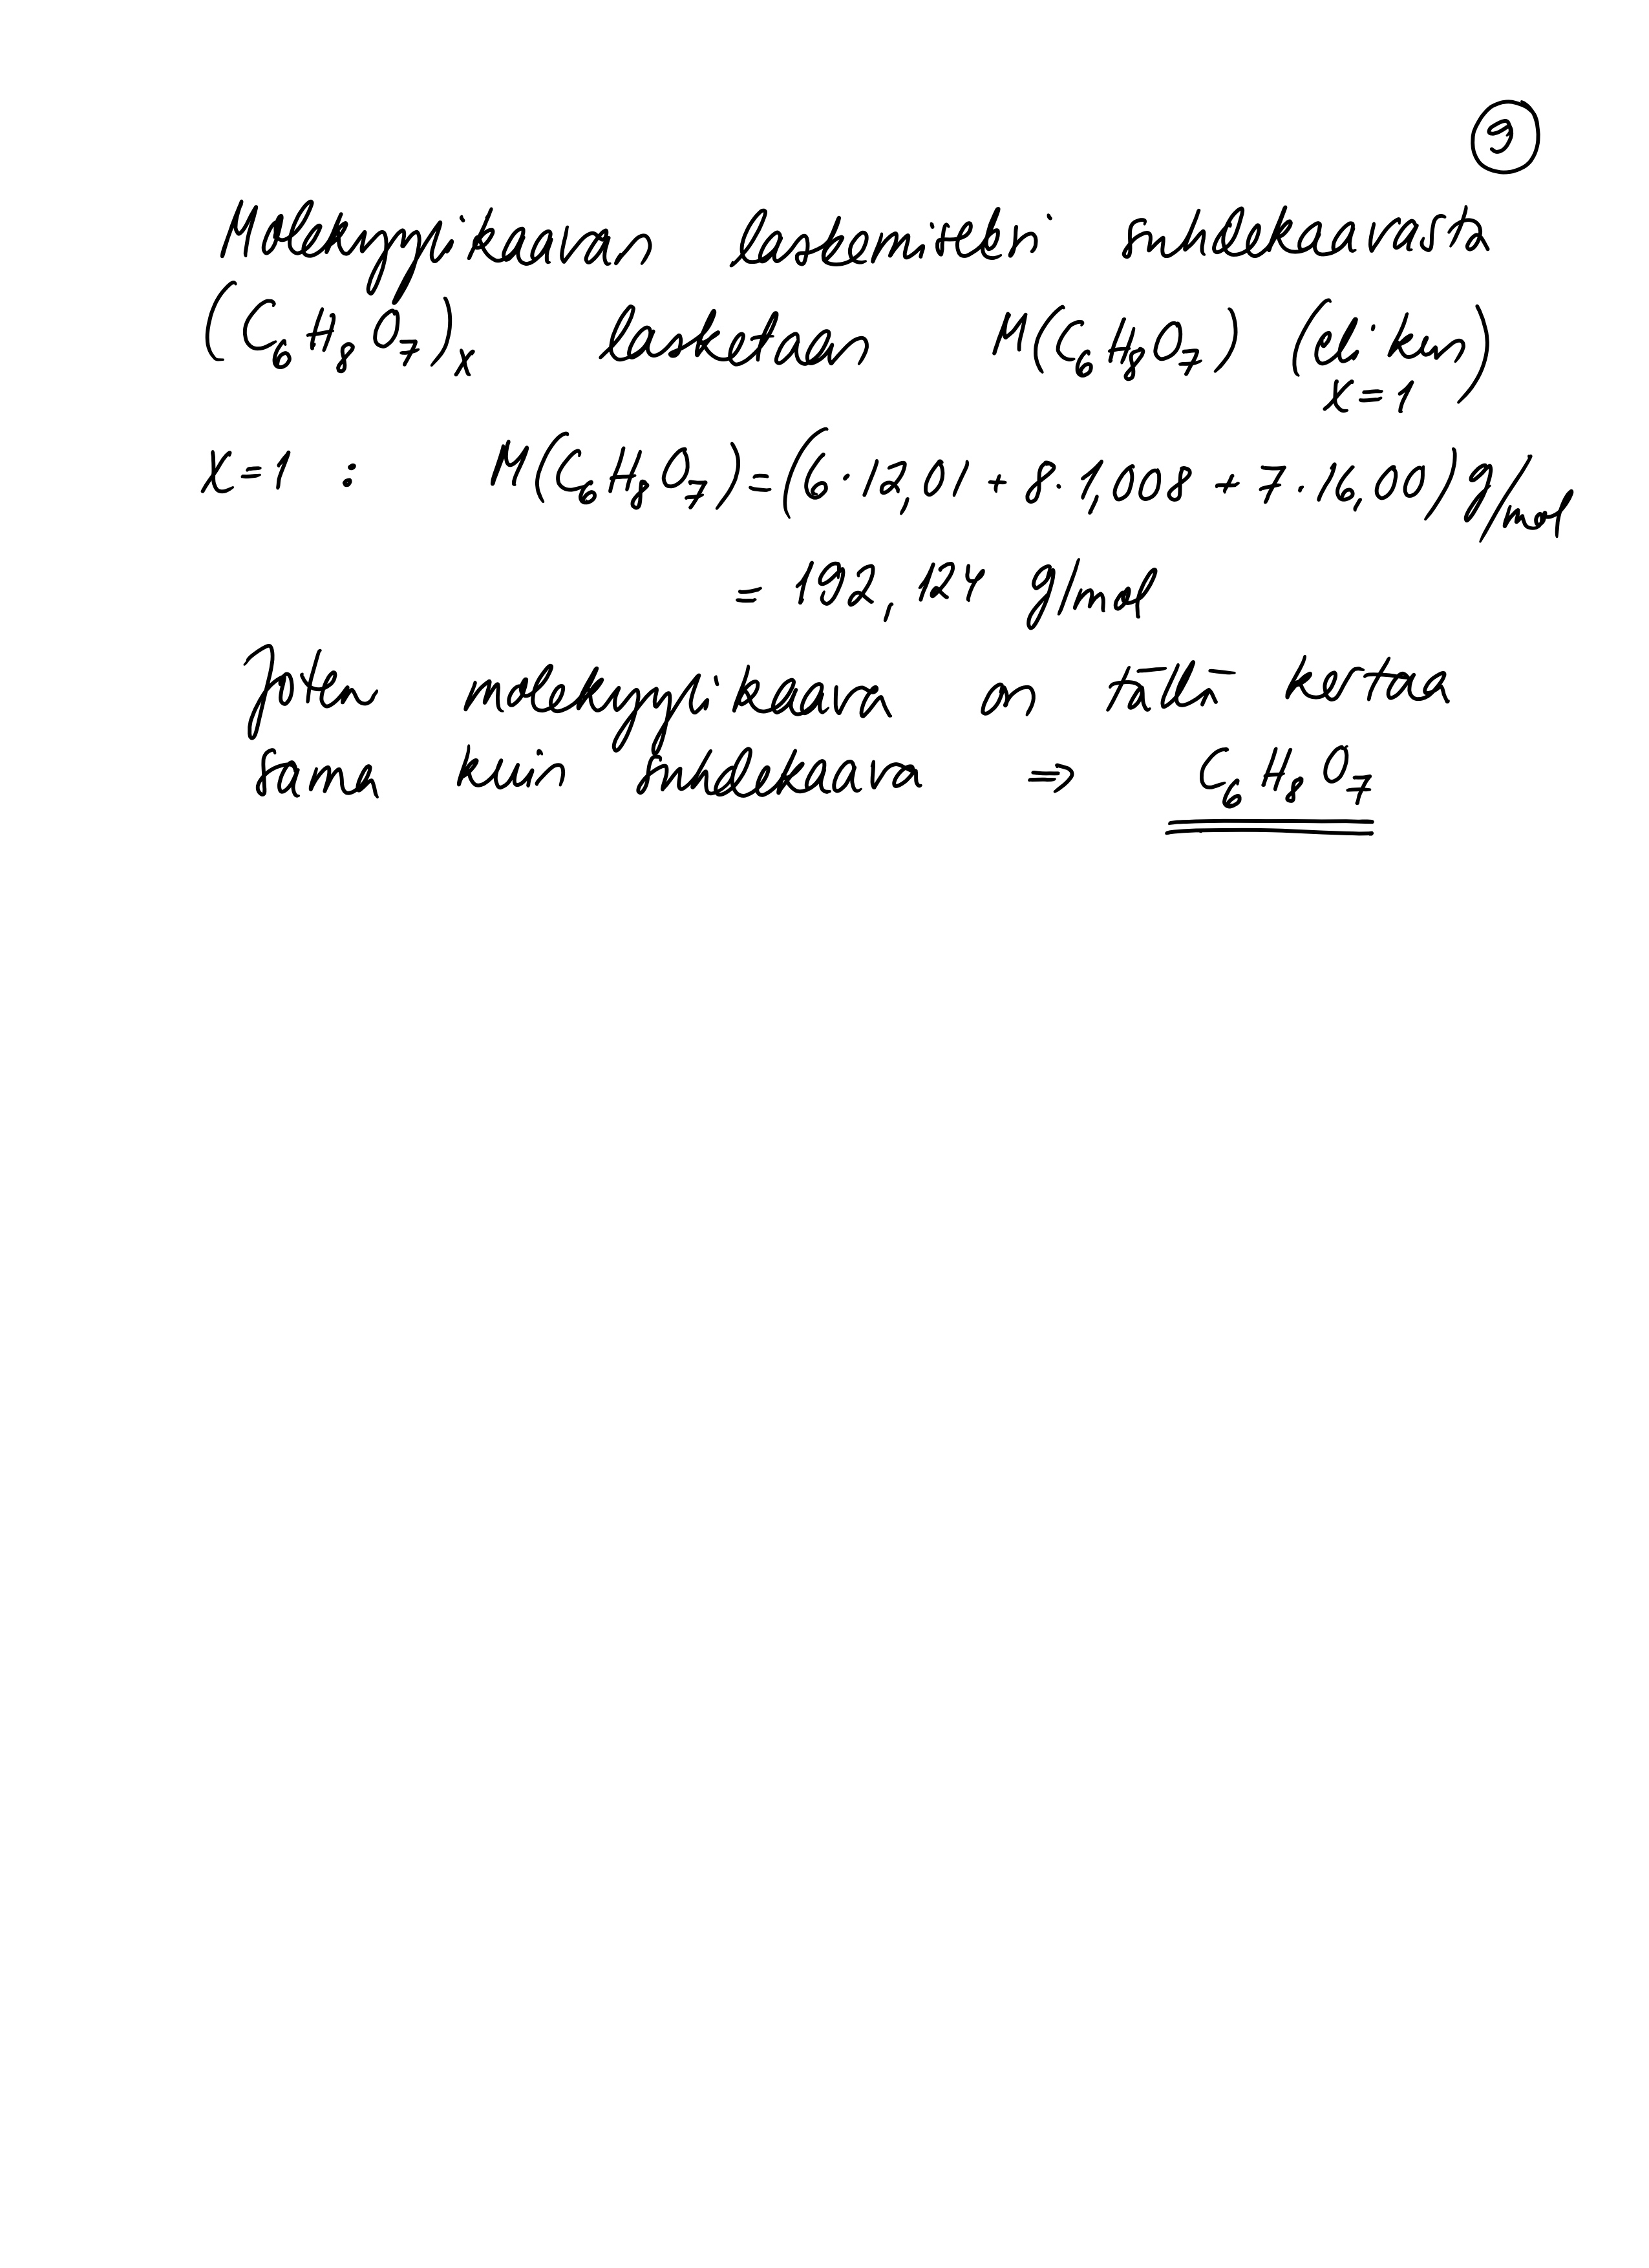 9
Molekyylikaavan laskemiseksi suhdekaavasta
(C₆H₈O₇)ₓ lasketaan M(C₆H₈O₇) (eli kun
x=1)
x=1 : M(C₆H₈O₇)=(6·12,01 + 8·1,008 + 7·16,00) g/mol
= 192,124 g/mol
Joten molekyylikaava on tällä kertaa
sama kuin suhdekaava => C₆H₈O₇